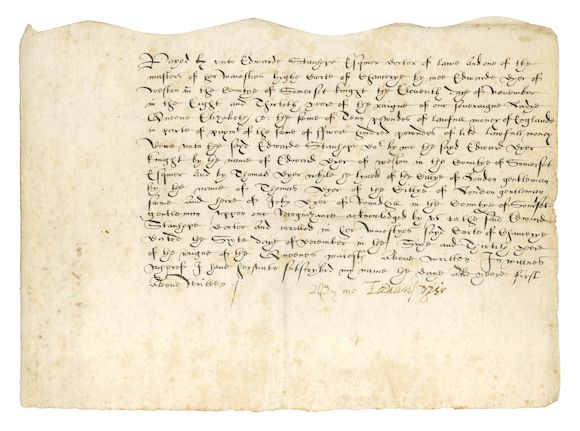 Payed by unto Edwarde Stanhope Esquier doctor of lawe and one of the
masters of her maiesties highe Courte of Chauncerye by mee Edwarde Dyer of
Weston in the Countye of Somerset knight the Eleventh daye of November
in the Eight and Thirtieth yeere of the raigne of our soveraigne Ladye
Queene Elizabeth &c the some of Tenn poundes of laufull money of Englande
in parte of payment of the some of hundred poundes of like laufull money
unto the said Edwarde Stanhope by me the said Edward Dyer
knight by the name of Edward Dyer of Weston in the Countye of Somerset
Esquier and by Thomas Dyer of the Cittye of London gentleman
by the name of Thomas Dyer of the Cittye of London gentleman
sonne and heire of John Dyer of in the Countye of Somerset
gentleman uppon one Recognizance acknowledged by us to the said Edward
Stanhope doctor and inrolled in her maiestyes said Courte of Chauncerye
dated the Sixte daye of December in the and Thirtith yeere
of the raigne of the Queenes maiesty above written. In witnes
whereof I have hereunto subscrybed my name the daye and yeere first
above written
By me